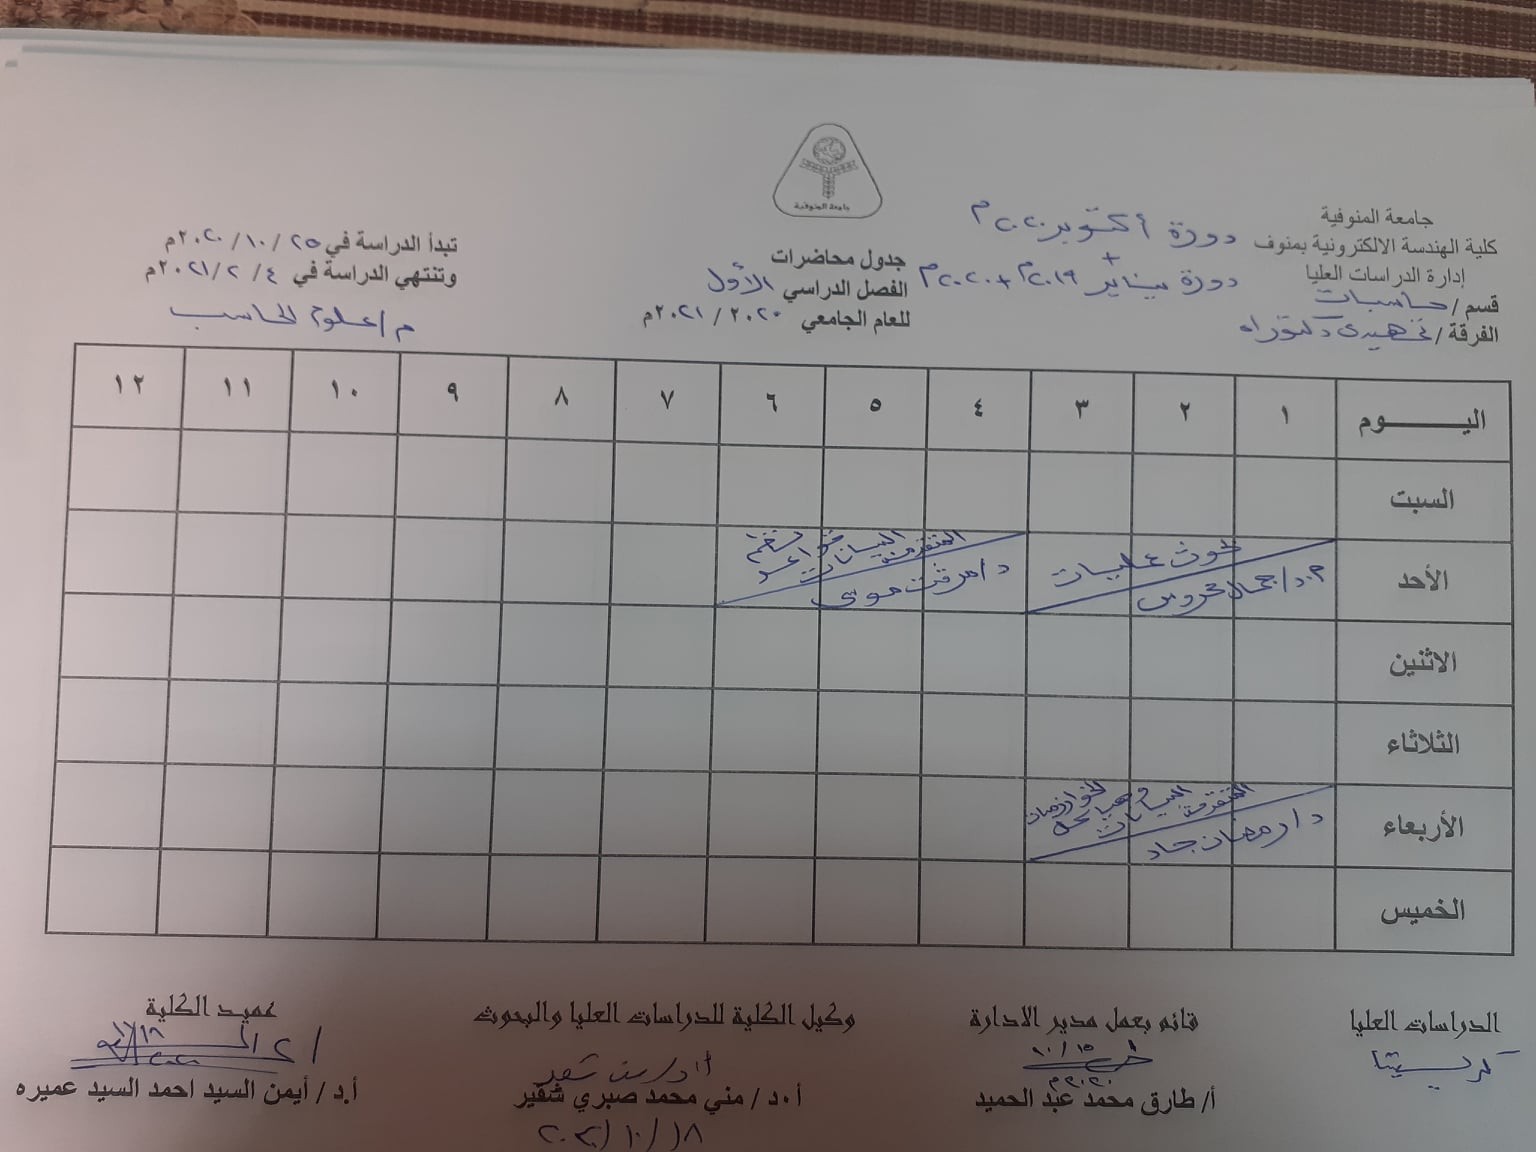 جامعة المنوفية
جامعة المنوفية
كلية الهندسة الالكترونية بمنوف
إدارة الدراسات العليا
قسم / حاسبات
الفرقة / تمهيدى دكتوراه
دورة أكتوبر ٢٠٢٠م
+
دورة يناير ٢٠١٩م + ٢٠٢٠م
جدول محاضرات
الفصل الدراسي الأول
للعام الجامعي ٢٠٢٠ / ٢٠٢١م
تبدأ الدراسة في ٢٥ / ١٠ / ٢٠٢٠م
وتنتهي الدراسة في ٤ / ٢ / ٢٠٢١م
م / علوم الحاسب
اليـــوم ١ ٢ ٣ ٤ ٥ ٦ ٧ ٨ ٩ ١٠ ١١ ١٢
السبت
الأحد
بحوث عمليات
م.د / جمال محروس
نظم قواعد البيانات المتقدمة
د / مرفت موسى
الاثنين
الثلاثاء
الأربعاء
الخوارزميات وهياكل البيانات المتقدمة
د / رمضان جاد
الخميس
الدراسات العليا
كريستينا
قائم بعمل مدير الادارة
١٥ / ١٠
٢٠٢٠م
أ/ طارق محمد عبد الحميد
وكيل الكلية للدراسات العليا والبحوث
أ.د / مني محمد صبري شقير
١٨ / ١٠ / ٢٠٢٠
عميد الكلية
أ.د / أيمن السيد احمد السيد عميره